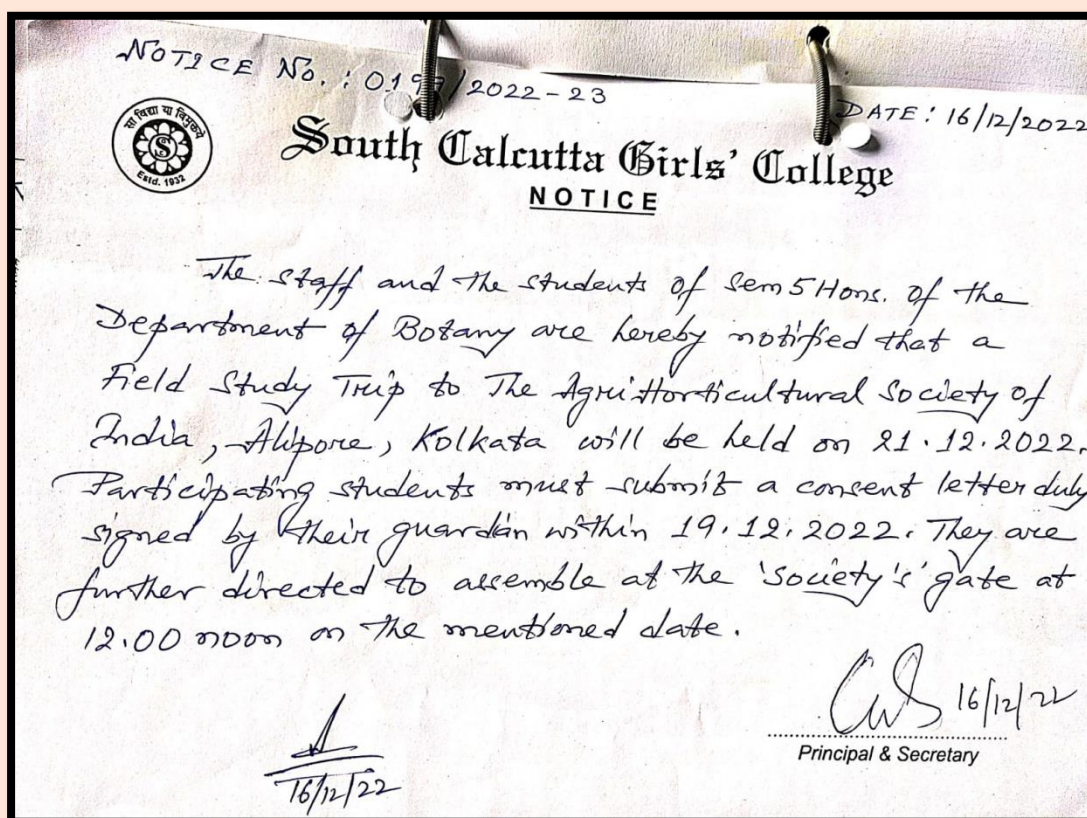 NOTICE No.: 0197/2022-23
DATE: 16/12/2022
सा विद्या या विमुक्तये
S
Estd. 1932
South Calcutta Girls' College
NOTICE
The staff and the students of Sem 5 Hons. of the
Department of Botany are hereby notified that a
Field Study Trip to The Agri Horticultural Society of
India, Alipore, Kolkata will be held on 21.12.2022.
Participating students must submit a consent letter duly
signed by their guardian within 19.12.2022. They are
further directed to assemble at the 'Society's' gate at
12.00 noon on the mentioned date.
16/12/22
16/12/22
Principal & Secretary